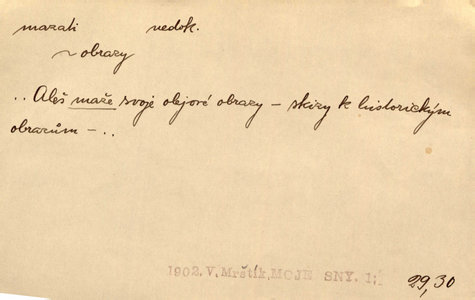 mazati nedok.
~ obrazy
.. Aleš maže svoje olejové obrazy – skizy k historickým
obrazům – ..
1902. V. Mrštík, MOJE SNY. 1;
29,30